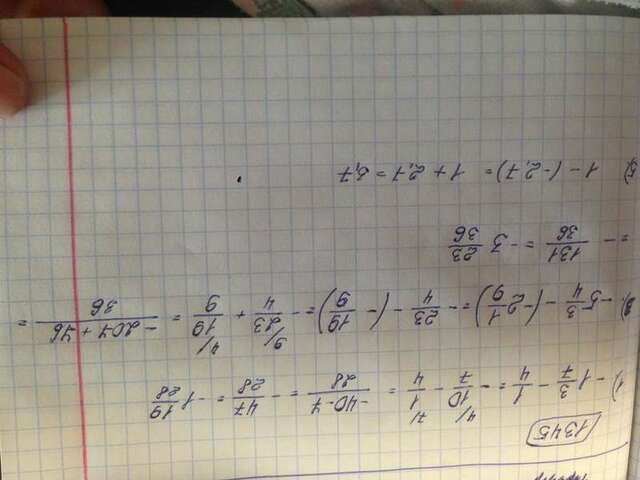 1345
1) -1 3/7 - 1/4 = -10/7 - 1/4 = -40-7/28 = -47/28 = -1 19/28
2) -5 3/4 - (-2 1/9) = -23/4 - (-19/9) = -23/4 + 19/9 = -207+76/36 =
= -131/36 = -3 23/36
1-(-2,7) = 1+2,7 = 3,7